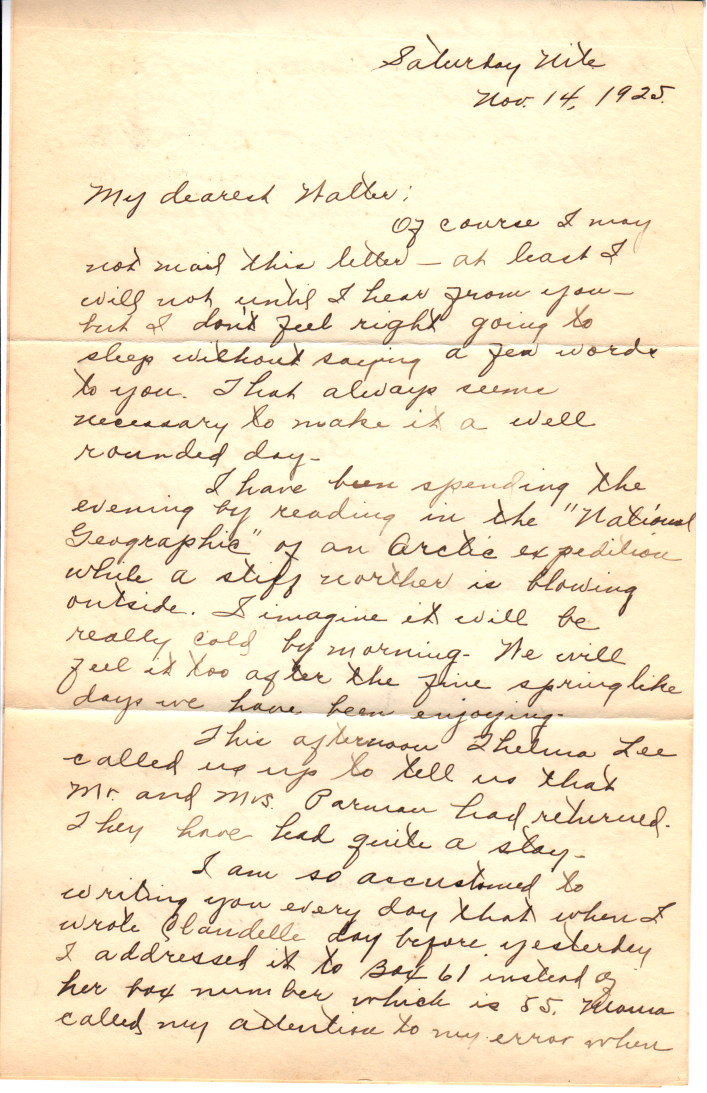 Saturday Nite
Nov. 14, 1925.
My dearest Walter:
Of course I may
not mail this letter – at least I
will not until I hear from you –
but I don't feel right going to
sleep without saying a few words
to you. That always seems
necessary to make it a well
rounded day.
I have been spending the
evening by reading in the "National
Geographic" of an Arctic expedition
while a stiff norther is blowing
outside. I imagine it will be
really cold by morning. We will
feel it too after the fine springlike
days we have been enjoying.
This afternoon Thelma Lee
called us up to tell us that
Mr. and Mrs. Parman had returned.
They have had quite a stay.
I am so accustomed to
writing you every day that when I
wrote Claudelle day before yesterday
I addressed it to Box 61 instead of
her box number which is 55. Mama
called my attention to my error when